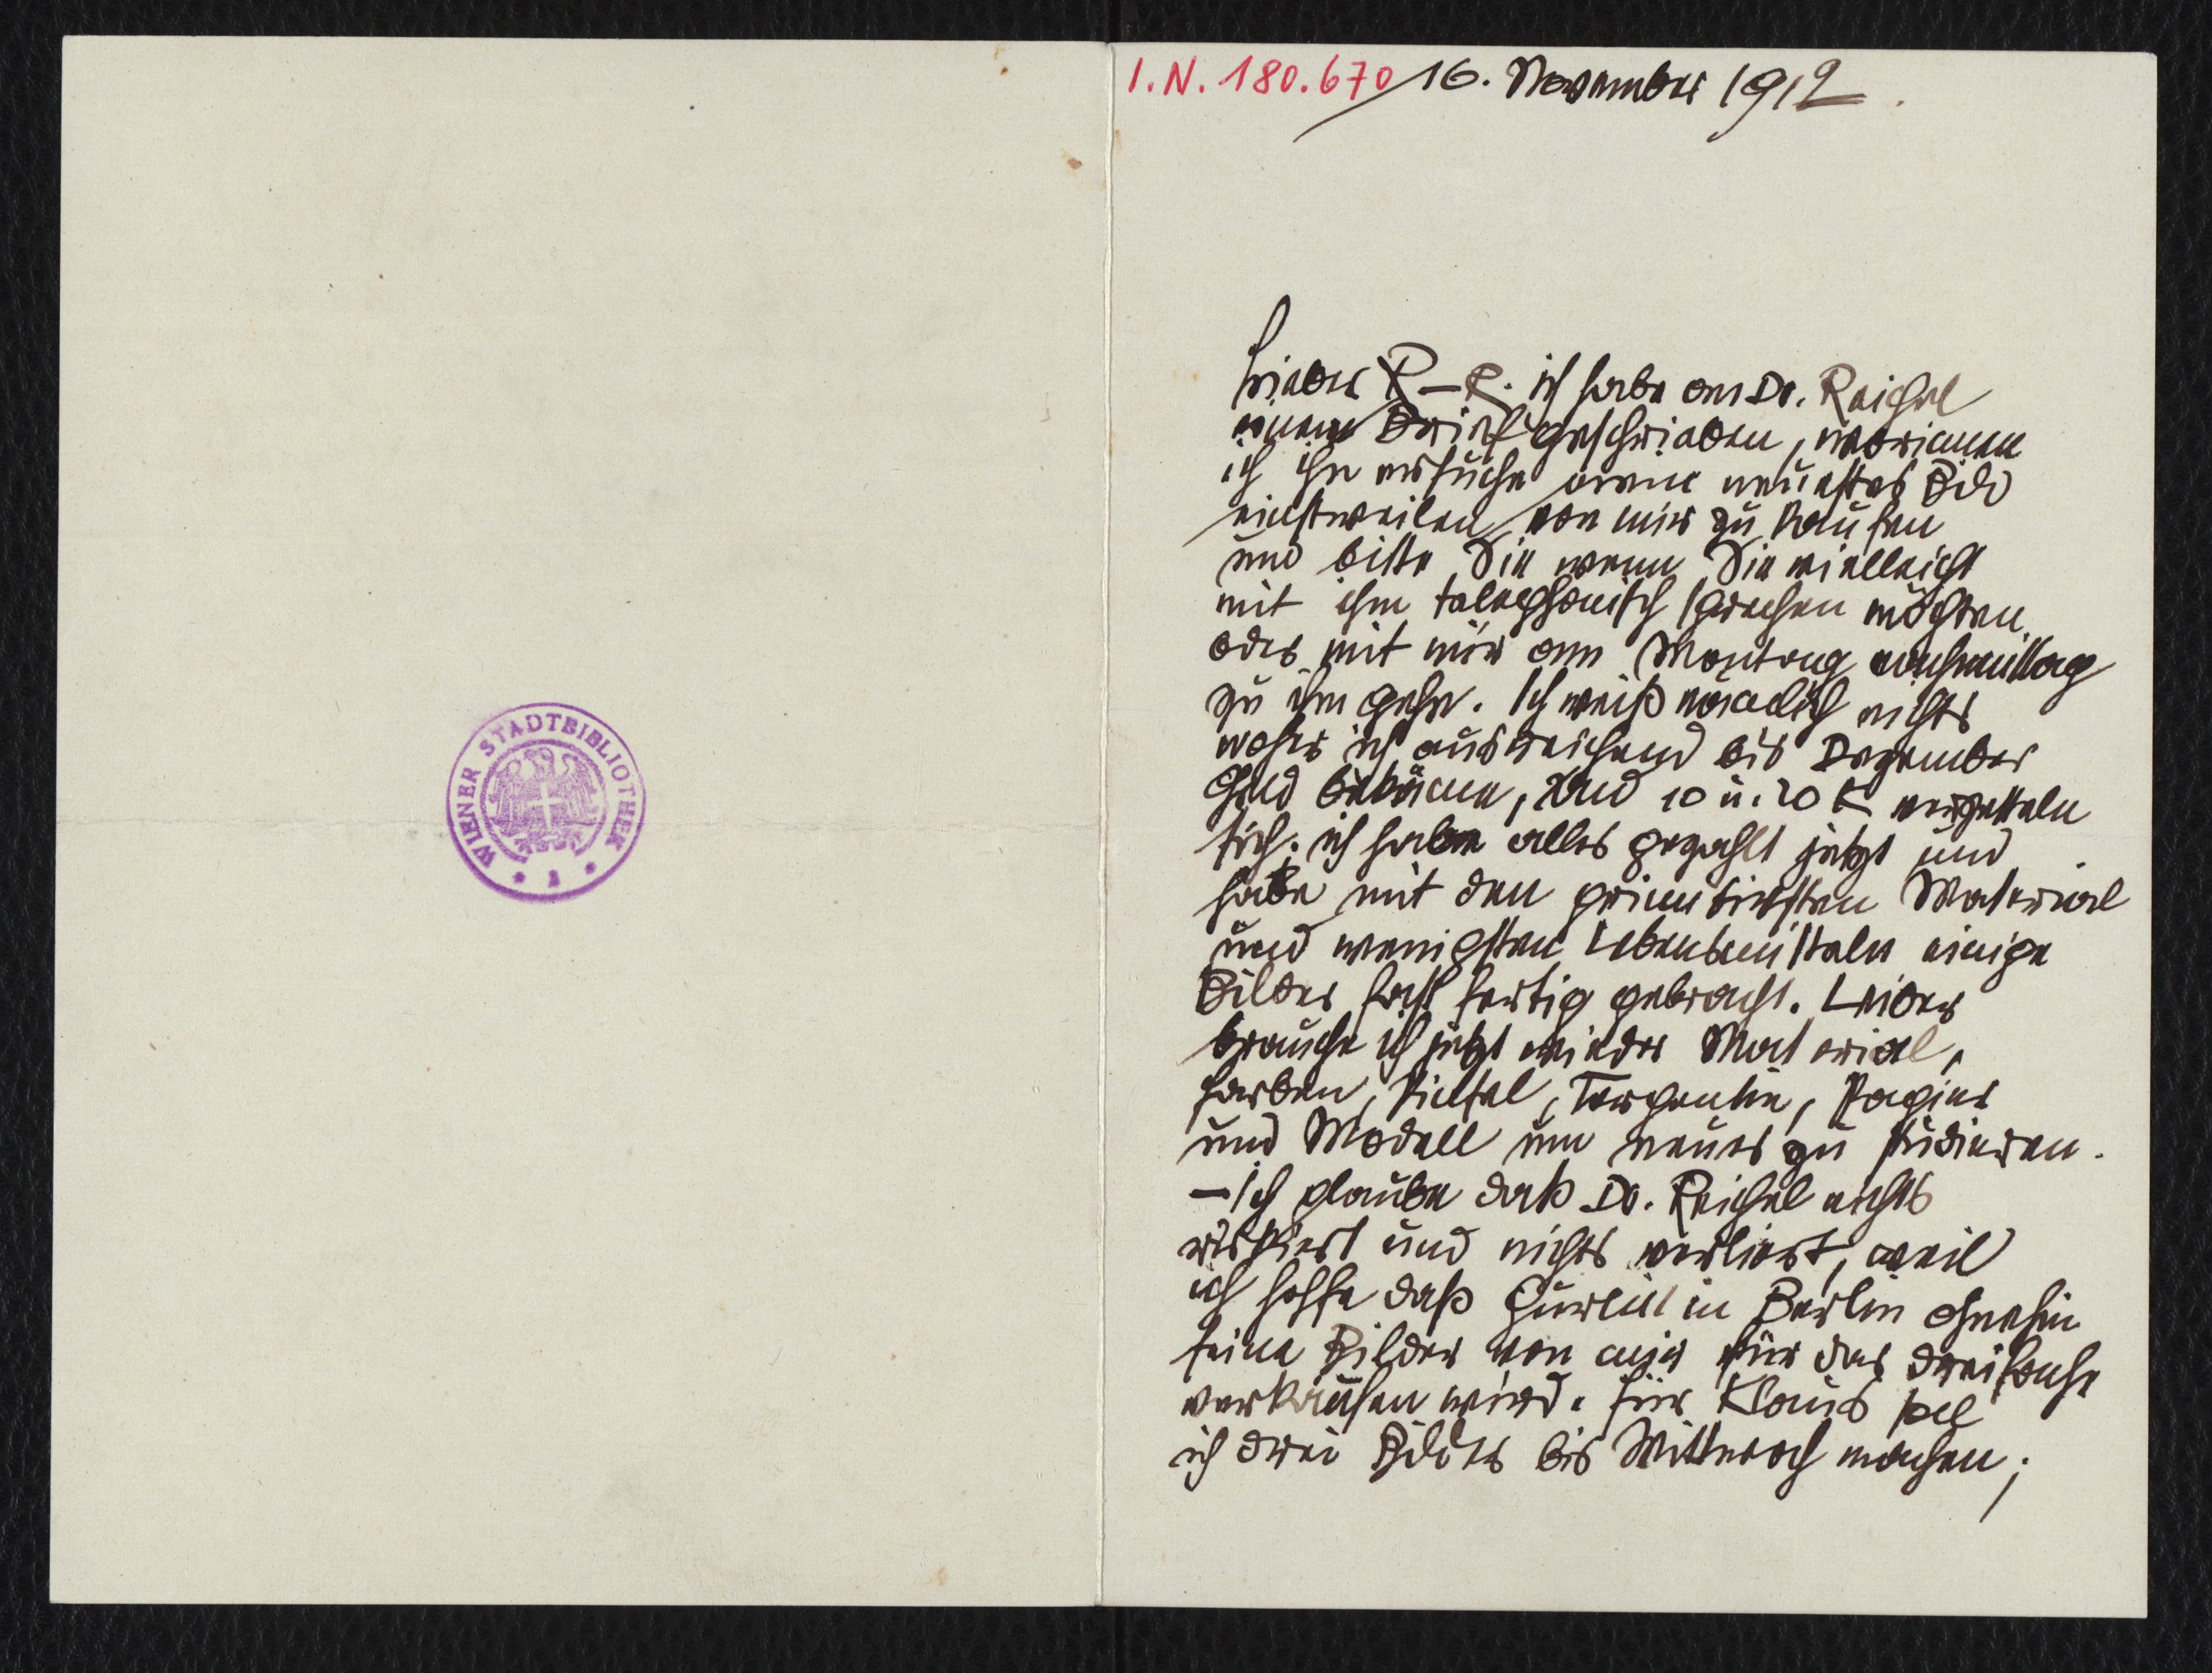 I.N. 180.670
16. November 1912
Lieber R–R. ich habe an Dr. Reichel
einen Brief geschrieben, worinnen
ich ihn ersuche mein neuestes Bild
einstweilen von mir zu kaufen
und bitte Sie wenn Sie vielleicht
mit ihm telephonisch sprechen möchten
oder mit mir am Montag nachmittag
zu ihm gehn. Ich weiß nämlich nicht
woher ich ausreichend bis Dezember
Geld bekäme, und 10 u. 20 K verzetteln
sich; ich habe alles gezahlt jetzt und
habe mit den primitivsten Material
und wenigsten Lebensmitteln einige
Bilder fast fertig gebracht. Leider
brauche ich jetzt wieder Material,
Farben, Pinsel, Terpentin, Papier
und Modell um neues zu studieren.
– Ich glaube daß Dr. Reichel nichts
riskiert und nichts verliert, weil
ich hoffe daß Gurlitt in Berlin ohnehin
seine Bilder von mir für das dreifache
verkaufen wird. Für Klaus soll
ich drei Bilder bis Mittwoch machen;
WIENER STADTBIBLIOTHEK